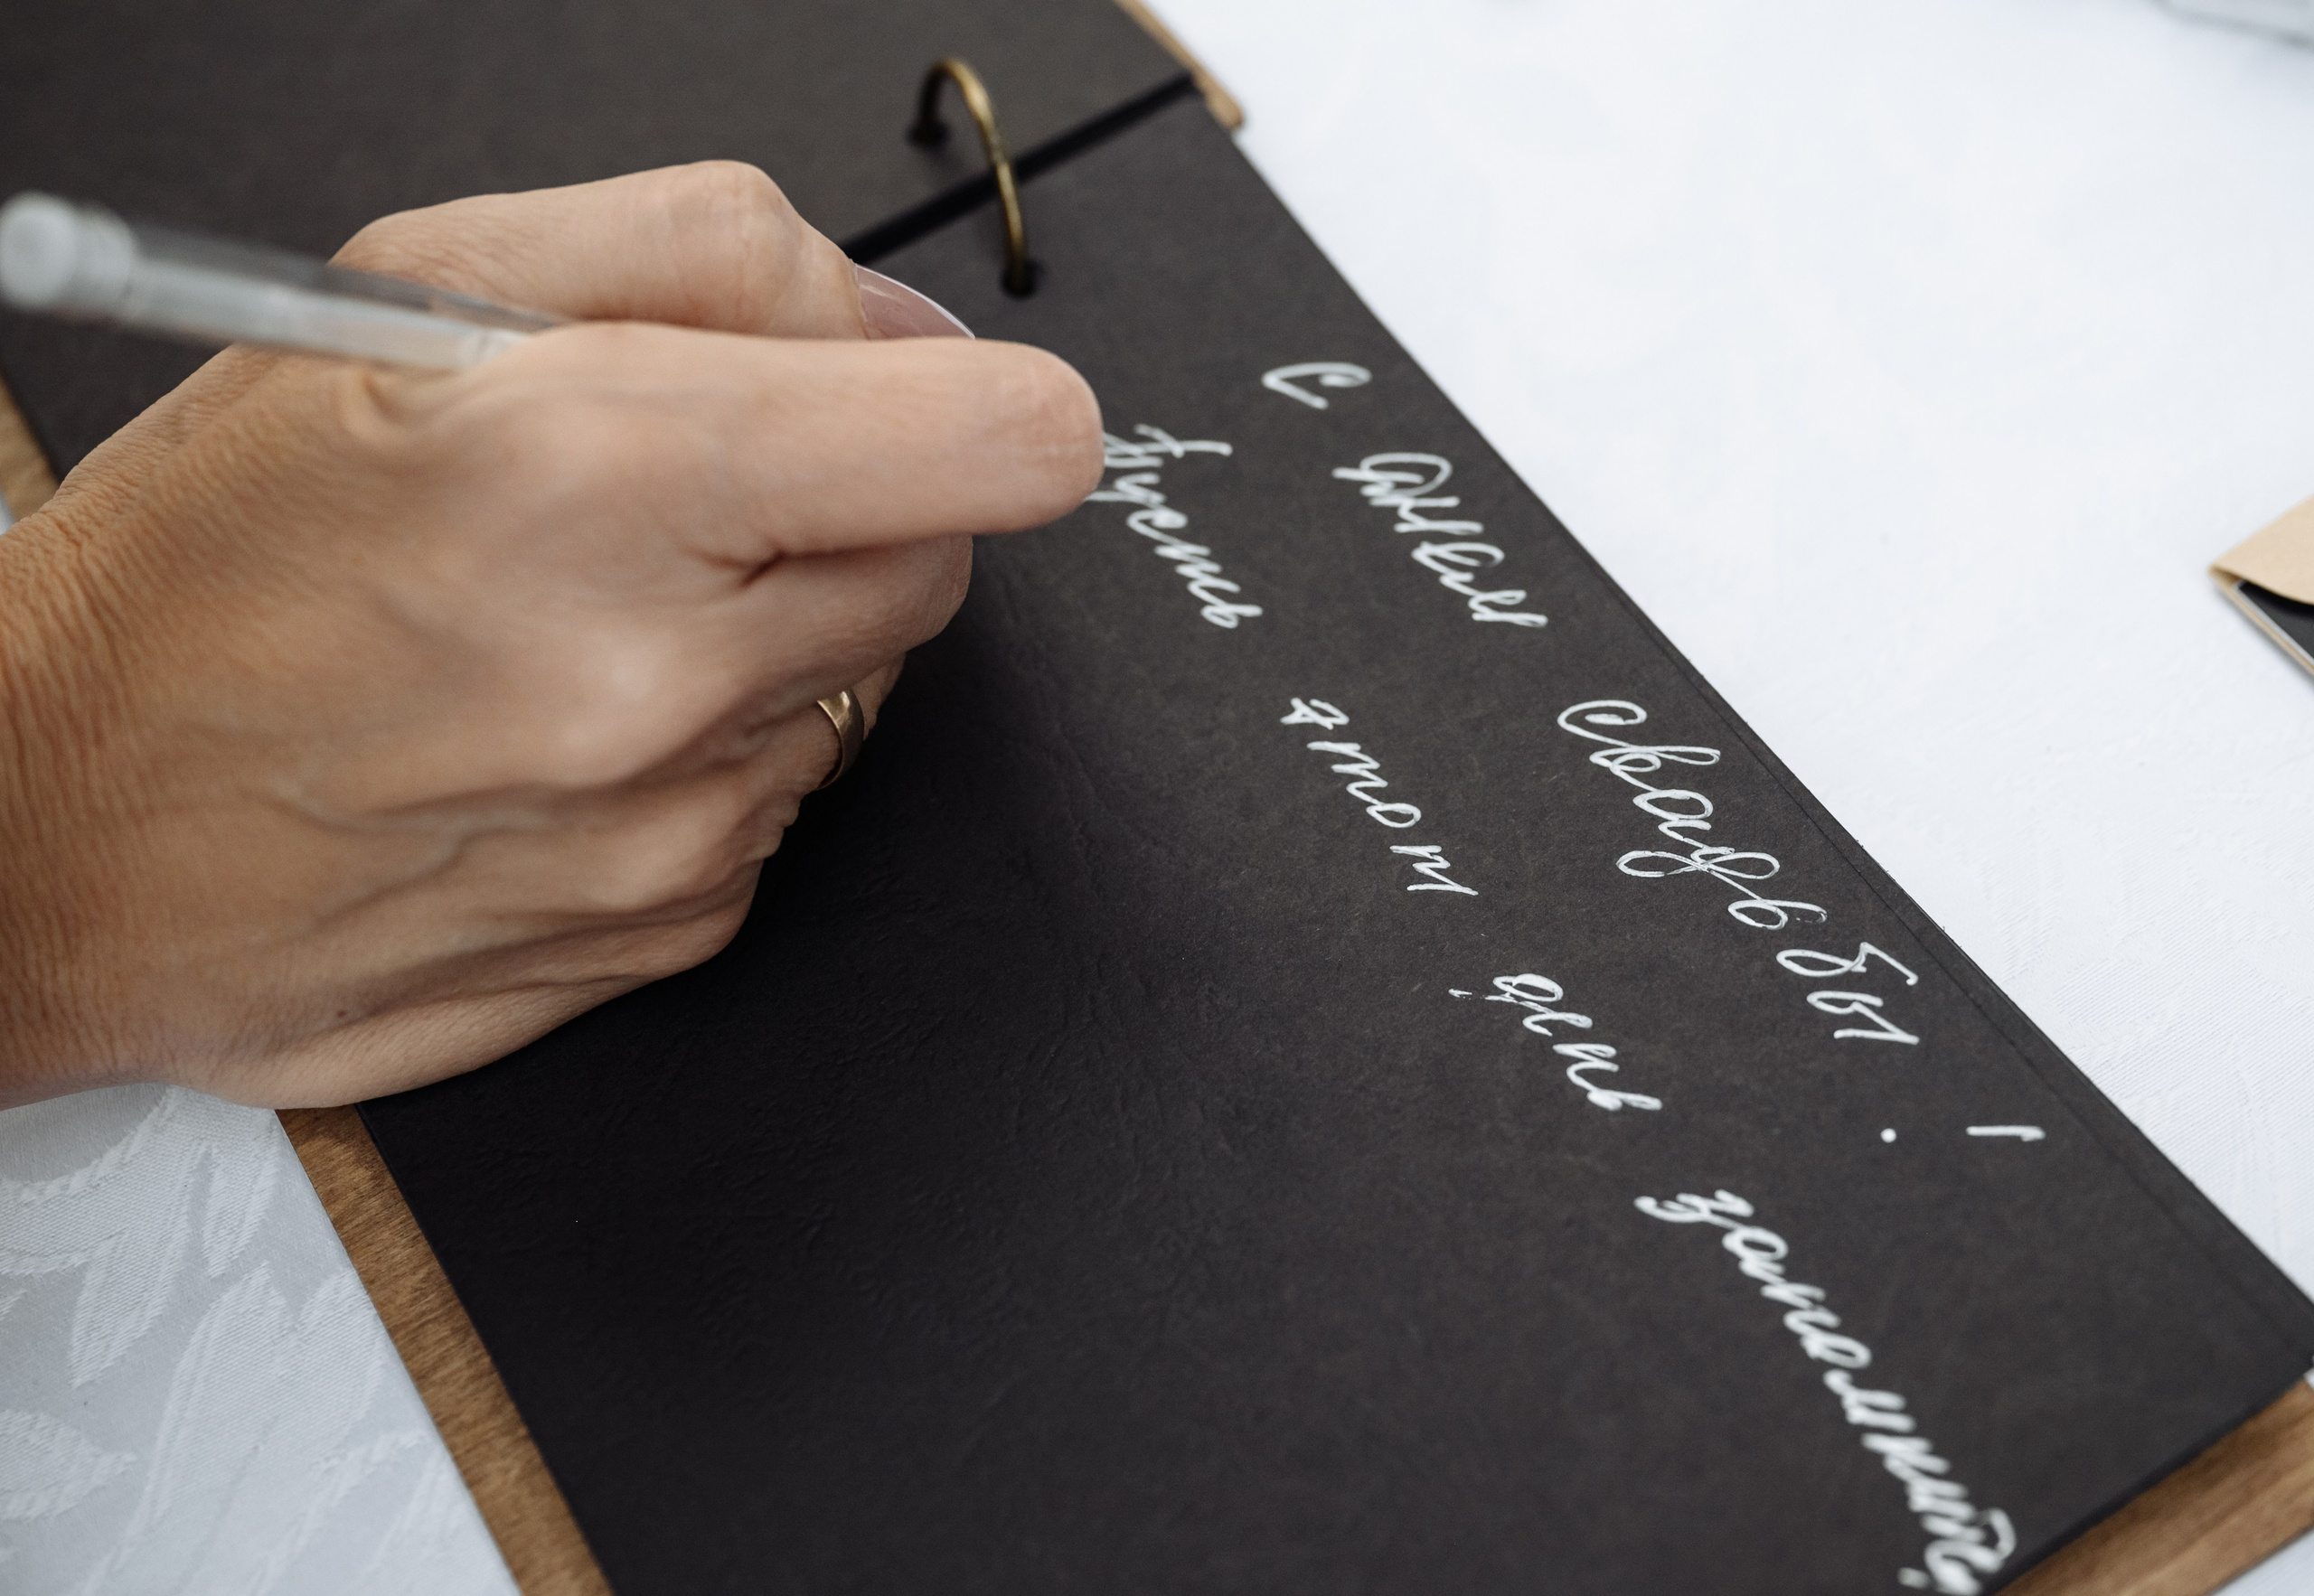 С днём свадьбы!
Пусть этот день запомнится